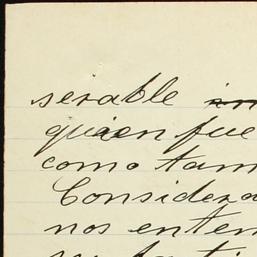 serable in
quien fue
como tam
Considera
nos enten